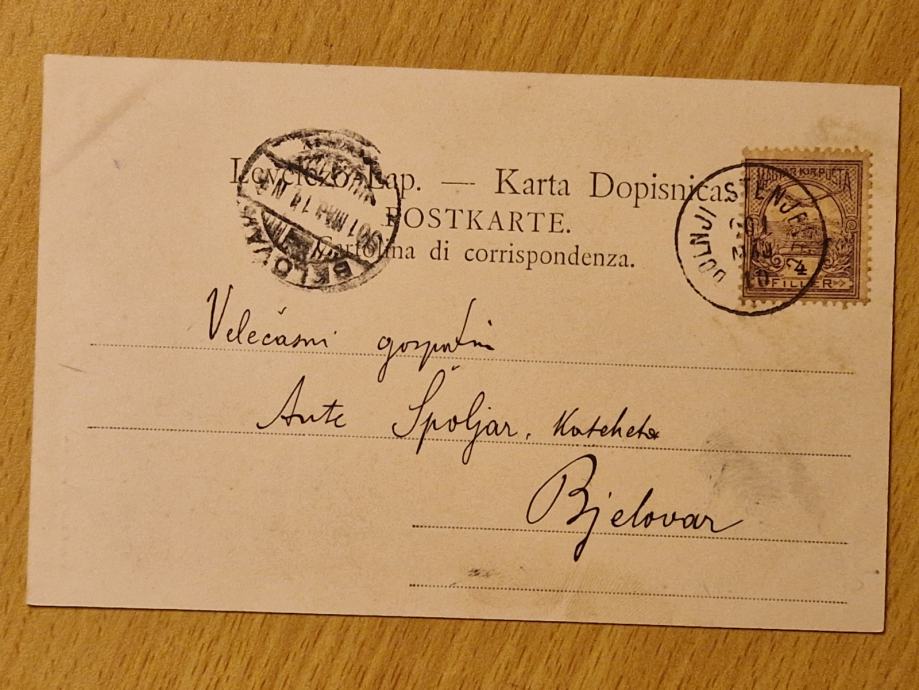 Levelező-Lap. — Karta Dopisnica.
POSTKARTE.
Cartolina di corrispondenza.
MAGYAR KIR. POSTA
4
FILLÉR
DOLNJI STENJEVEC
901
BELOVÁR
901 MAR
Velečasni gospodin
Ante Špoljar, kateheta
Bjelovar